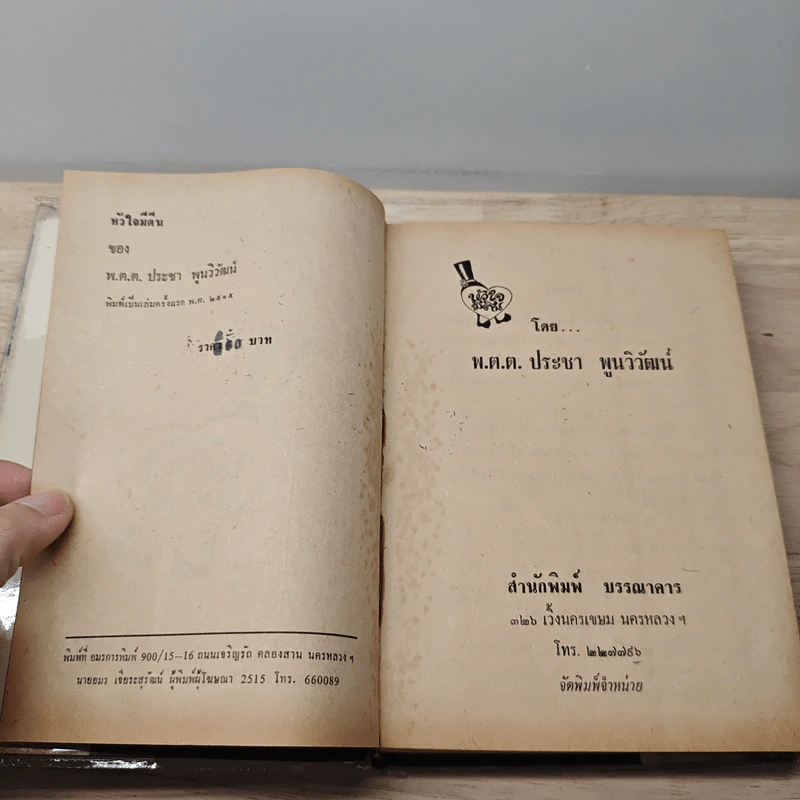 หัวใจมีตีน
ของ
พ.ต.ต. ประชา พูนวิวัฒน์
พิมพ์เป็นเล่มครั้งแรก พ.ศ. ๒๕๑๕
ราคา บาท
พิมพ์ที่ อมรการพิมพ์ 900/15-16 ถนนเจริญรัถ คลองสาน นครหลวง ฯ
นายอมร เจียระสุวัฒน์ ผู้พิมพ์ผู้โฆษณา 2515 โทร. 660089
หัวใจ
มีตีน
โดย...
พ.ต.ต. ประชา พูนวิวัฒน์
สำนักพิมพ์ บรรณาคาร
๓๒๖ เวิ้งนครเขษม นครหลวง ฯ
โทร. ๒๒๗๗๙๖
จัดพิมพ์จำหน่าย